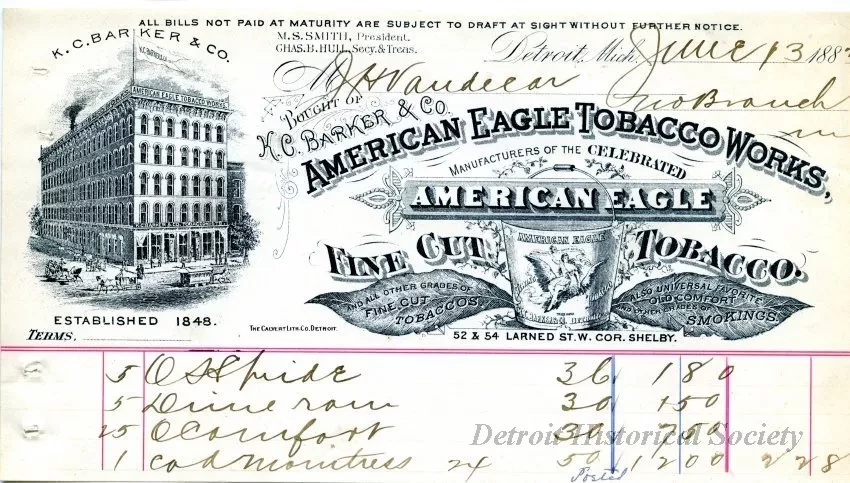 ALL BILLS NOT PAID AT MATURITY ARE SUBJECT TO DRAFT AT SIGHT WITHOUT FURTHER NOTICE.
K. C. BARKER & CO.
M. S. SMITH, President.
CHAS. B. HULL, Secy. & Treas.
Detroit, Mich. June 13 188
M J H Vandecar
BOUGHT OF
K. C. BARKER & CO.
AMERICAN EAGLE TOBACCO WORKS,
AMERICAN EAGLE TOBACCO WORKS
MANUFACTURERS OF THE CELEBRATED
AMERICAN EAGLE
FINE CUT TOBACCO.
AMERICAN EAGLE
AND ALL OTHER GRADES OF
FINE CUT
TOBACCOS.
ALSO UNIVERSAL FAVORITE
OLD COMFORT
AND OTHER GRADES OF
SMOKINGS.
ESTABLISHED 1848.
THE CALVERT LITH. CO. DETROIT.
52 & 54 LARNED ST. W. COR. SHELBY.
TERMS,
5 36 180
5 30 150
25 O Comfort 30
1 24 50 1200 228
Posted
Detroit Historical Society